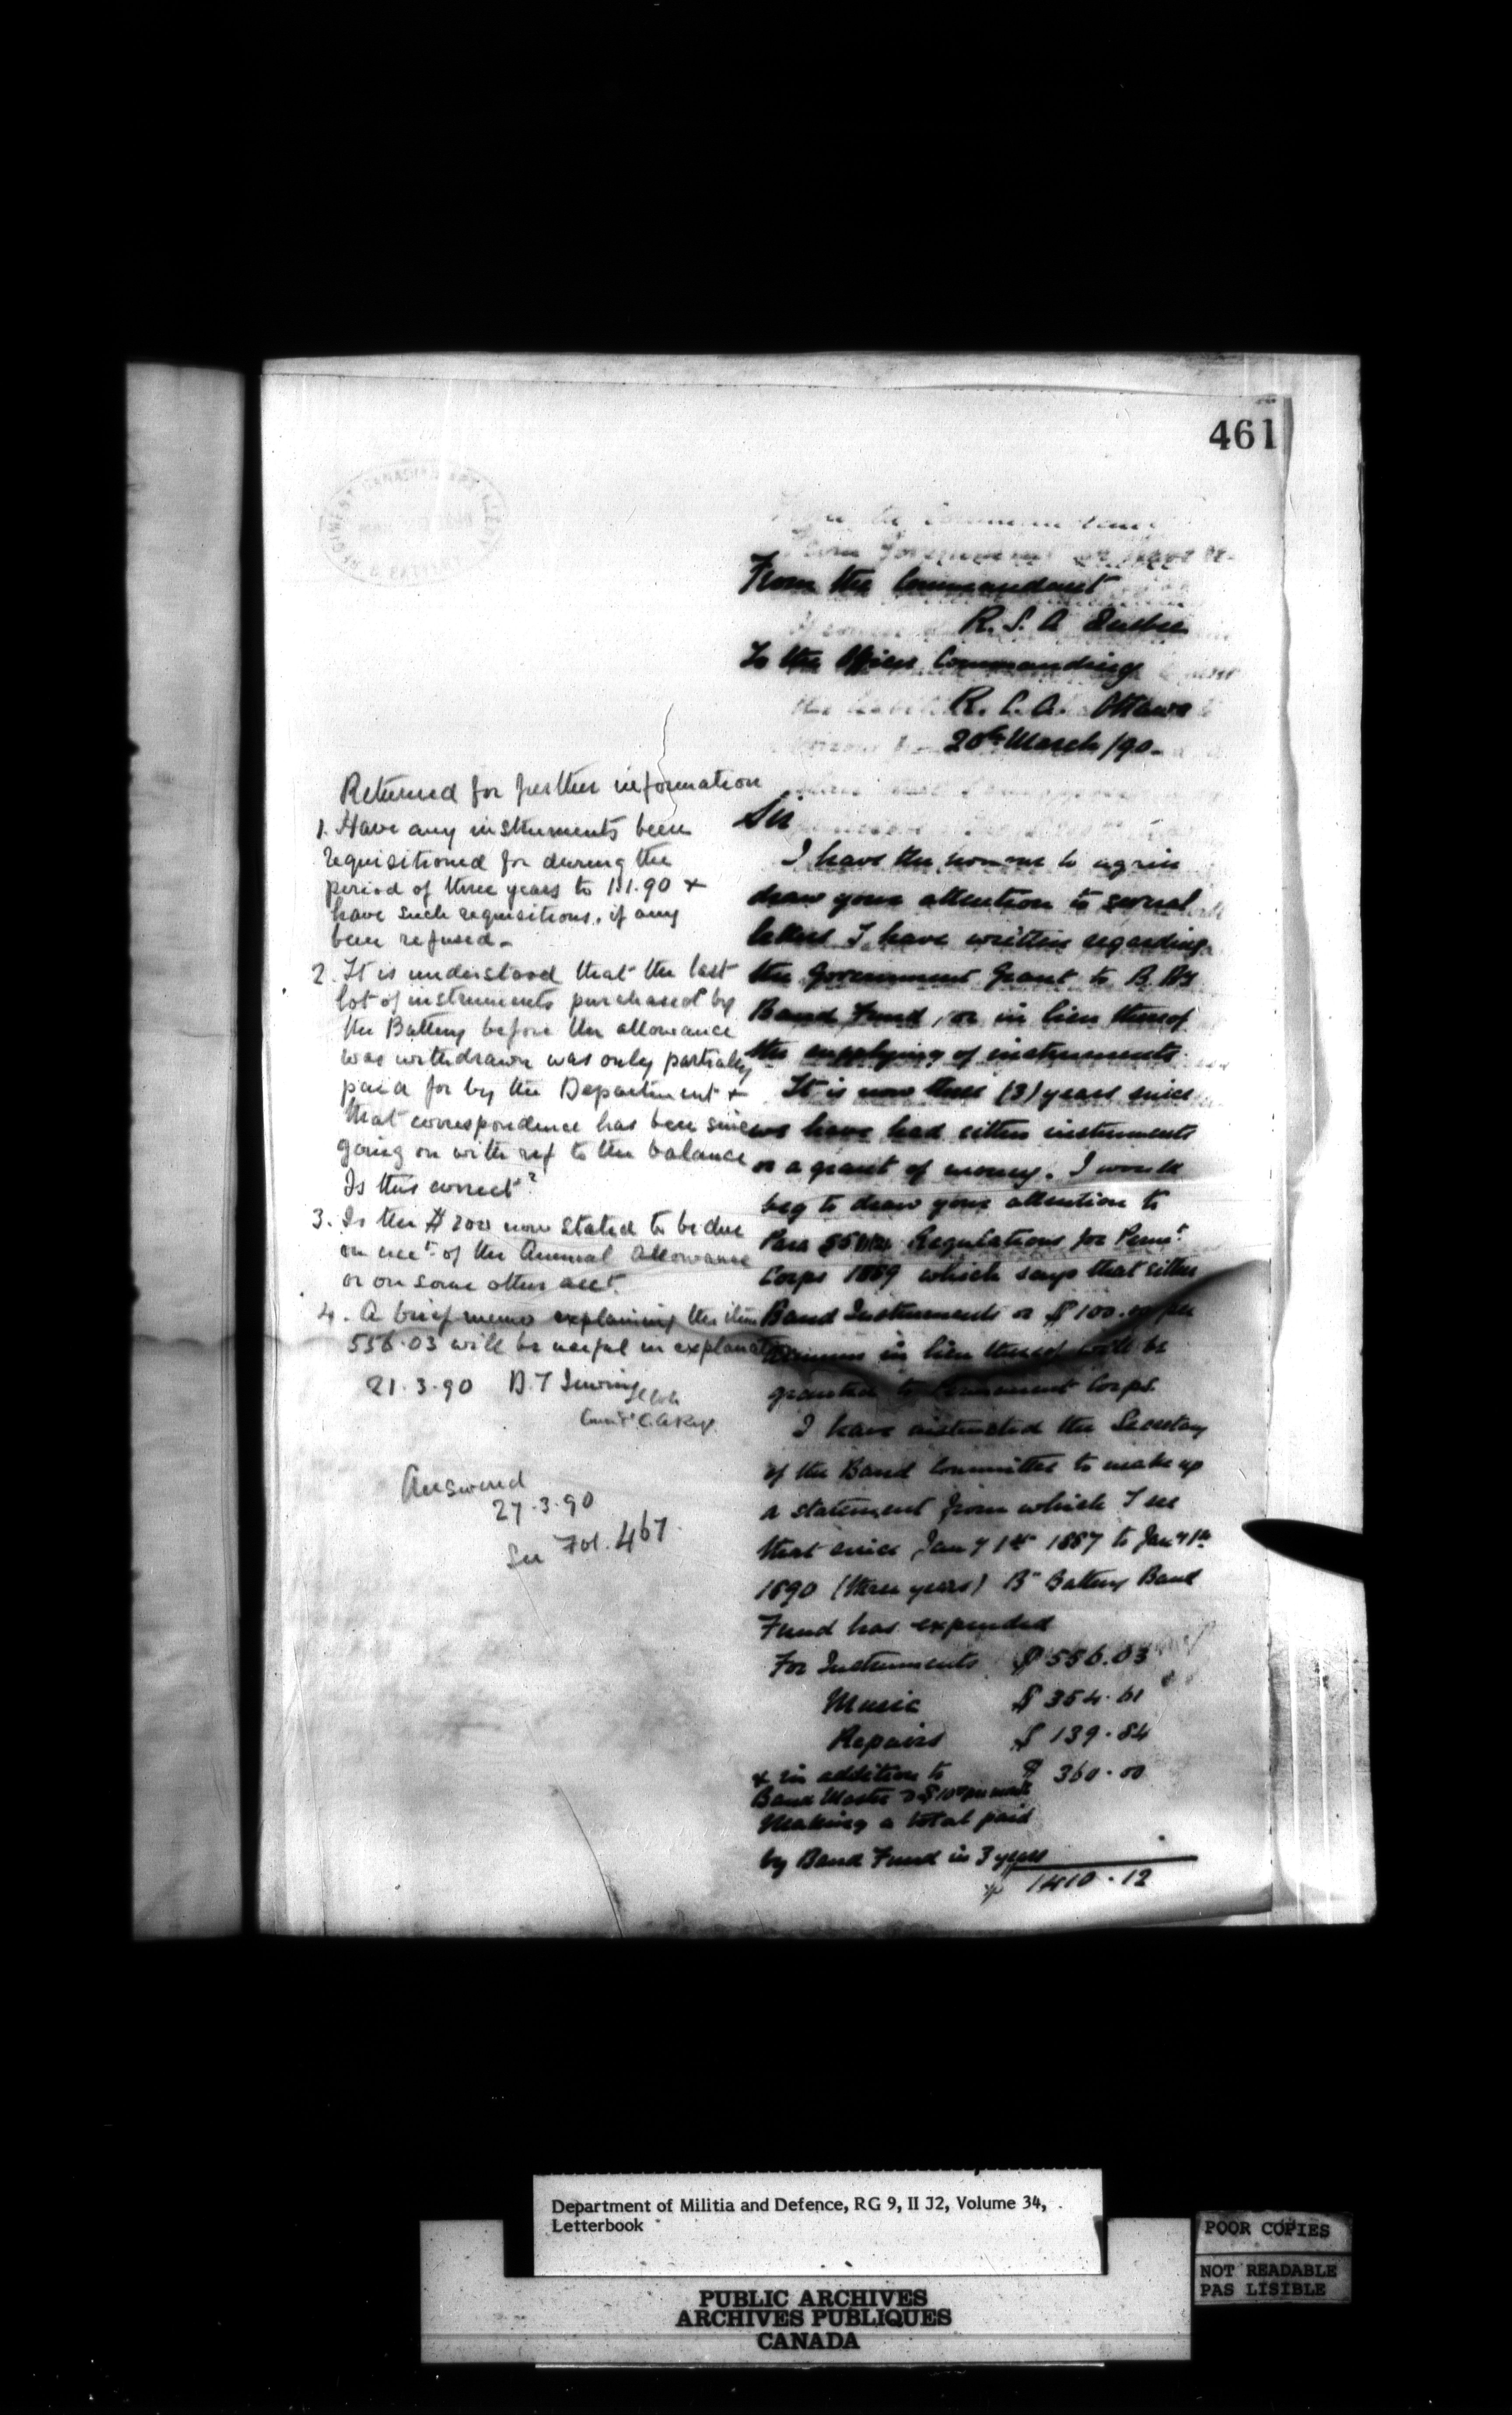 461
From the Commandant
R. S. A Quebec
To the Officer Commanding
R. C. A. Ottawa
20th March /90.
Sir
I have the honour to again
draw your attention to several
letters I have written regarding
the Government Grant to B. By
Band Fund, or in lieu thereof
the supplying of instruments.
It is now three (3) years since
we have had either instruments
or a grant of money. I would
beg to draw your attention to
Para Regulations for Permt.
Corps 1889 which says that either
Band Instruments or $100.00 per
annum in lieu thereof will be
granted to Permanent Corps.
I have instructed the Secretary
of the Band Committee to make up
a statement from which I see
that since Jany 1st 1887 to Jany 1st
1890 (three years) B" Battery Band
Fund has expended
For Instruments $ 556.03
Music $ 354.61
Repairs $ 139.84
& in addition to $ 360.00
Band Master $10 per month
Making a total paid
by Band Fund in 3 years
$ 1410.12
Returned for further information
1. Have any instruments been
requisitioned for during the
period of three years to 1.1.90 &
have such requisitions, if any
been refused.
2. It is understood that the last
lot of instruments purchased by
the Battery before the allowance
was withdrawn was only partially
paid for by the Department &
that correspondence has been since
going on with ref to the balance
Is this correct?
3. Is the $200 now stated to be due
on acct. of the Annual Allowance
or on some other acct.
4. A brief memo explaining the item
556.03 will be useful in explanation
21.3.90 D. T Irwin
Answered
27.3.90
See Fol. 467.
Department of Militia and Defence, RG 9, II J2, Volume 34,
Letterbook
POOR COPIES
NOT READABLE
PAS LISIBLE
PUBLIC ARCHIVES
ARCHIVES PUBLIQUES
CANADA